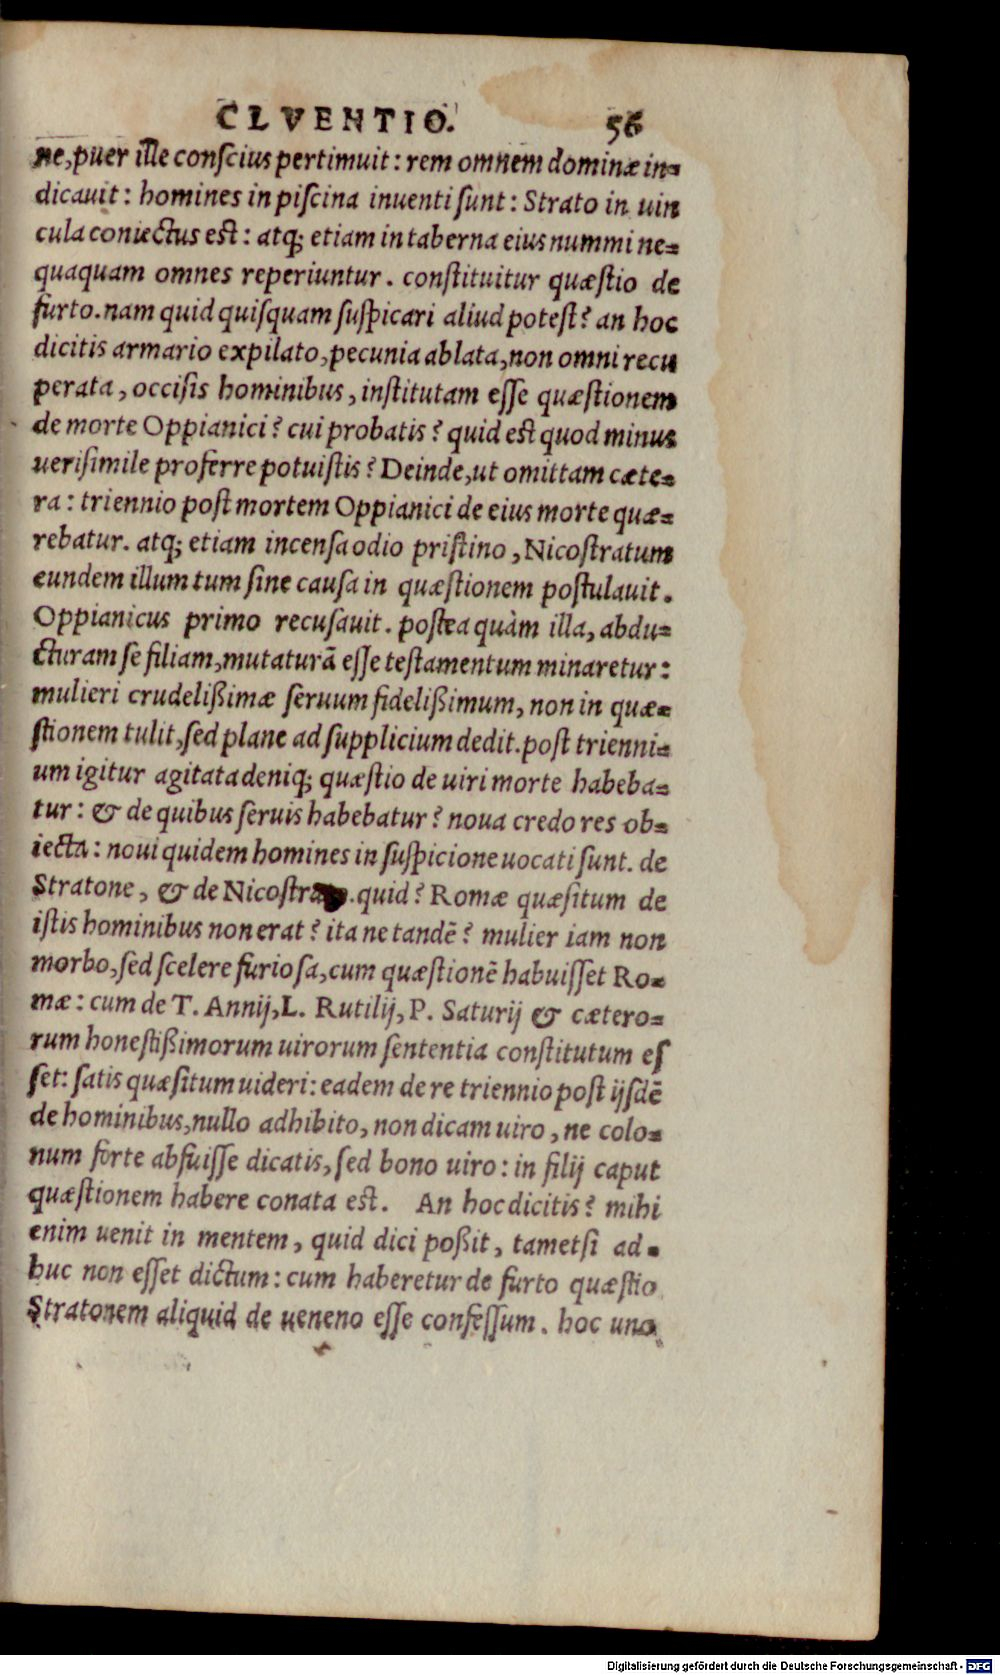 CLVENTIO. 56
ne, puer ille conscius pertimuit: rem omnem dominæ in=
dicauit: homines in piscina inuenti sunt: Strato in uin
cula coniectus est: atq; etiam in taberna eius nummi ne=
quaquam omnes reperiuntur. constituitur quæstio de
furto. nam quid quisquam suspicari aliud potest? an hoc
dicitis armario expilato, pecunia ablata, non omni recu
perata, occisis hominibus, institutam esse quæstionem
de morte Oppianici? cui probatis? quid est quod minus
uerisimile proferre potuistis? Deinde, ut omittam cæte=
ra: triennio post mortem Oppianici de eius morte quæ=
rebatur. atq; etiam incensa odio pristino, Nicostratum
eundem illum tum sine causa in quæstionem postulauit.
Oppianicus primo recusauit. postea quàm illa, abdu=
cturam se filiam, mutaturā esse testamentum minaretur:
mulieri crudelißimæ seruum fidelißimum, non in quæ=
stionem tulit, sed plane ad supplicium dedit. post trienni=
um igitur agitata deniq; quæstio de uiri morte habeba=
tur: & de quibus seruis habebatur? noua credo res ob=
iecta: noui quidem homines in suspicione uocati sunt. de
Stratone, & de Nicostrato. quid? Romæ quæsitum de
istis hominibus non erat? ita ne tandē? mulier iam non
morbo, sed scelere furiosa, cum quæstionē habuisset Ro=
mæ: cum de T. Annij, L. Rutilij, P. Saturij & cætero=
rum honestißimorum uirorum sententia constitutum es
set: satis quæsitum uideri: eadem de re triennio post ijsdē
de hominibus, nullo adhibito, non dicam uiro, ne colo=
num forte abfuisse dicatis, sed bono uiro: in filij caput
quæstionem habere conata est. An hoc dicitis? mihi
enim uenit in mentem, quid dici poßit, tametsi ad=
huc non esset dictum: cum haberetur de furto quæstio
Stratonem aliquid de ueneno esse confessum. hoc uno
Digitalisierung gefördert durch die Deutsche Forschungsgemeinschaft - DFG